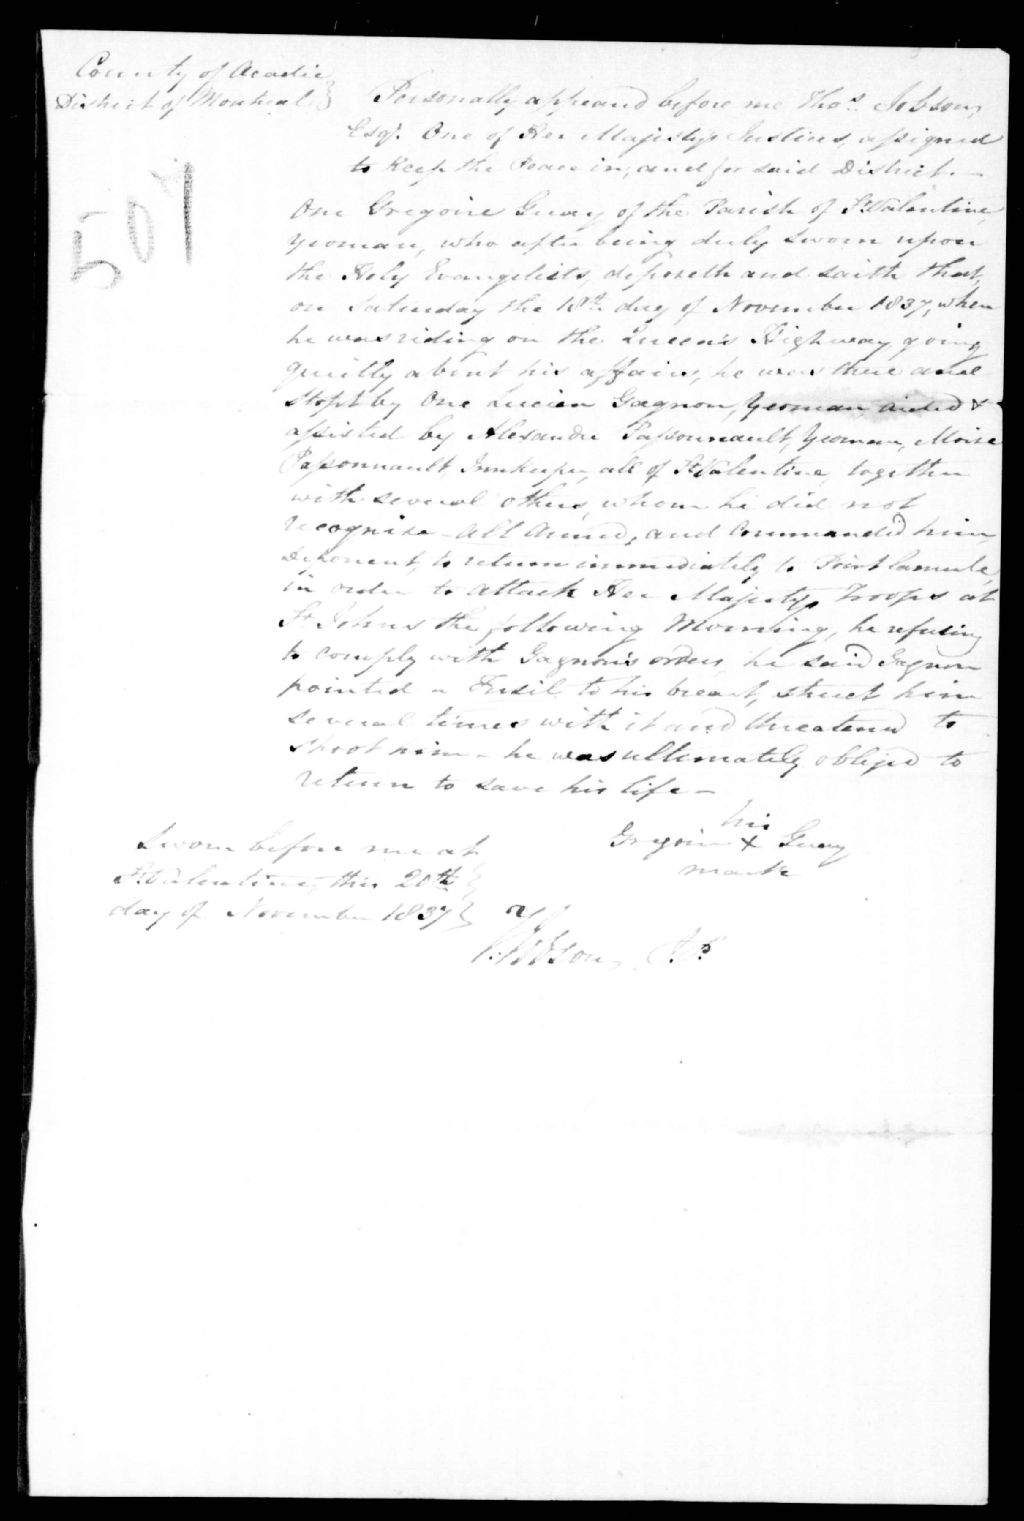 County of Acadie }
District of Montreal }
Personally appeared before me Thos. Jobson,
Esqr. One of Her Majestys Justices, assigned
to Keep the Peace in, and for said District. —
507
One Gregoire Guay of the Parish of St Valentine,
yeoman, who after being duly sworn upon
the Holy Evangelists, deposeth and saith that,
on Saturday the 18th day of November 1837, when
he was riding on the Queen's Highway, going
quietly about his affairs, he was there and
Stopt by One Lucien Gagnon, Yeoman, aided &
assisted by Alexandre Passonneault, Yeoman, Moise
Passonnault, Innkeeper, all of St Valentine, together
with several others, whom he did not
recognise – All Armed, and Commanded him,
Deponent, to return immediately to Point
in order to attack Her Majestys Troops at
St Johns the following Morning, he refusing
to comply with Gagnon's orders, he said Gagnon
pointed a Fusil to his breast, struct him
several times with it and threatened to
shoot him – he was ultimately obliged to
return to save his life –
his
Gregoire X Guay
mark
Sworn before me at }
St Valentine, this 20th }
day of November 1837 }
T. Jobson, J.P.